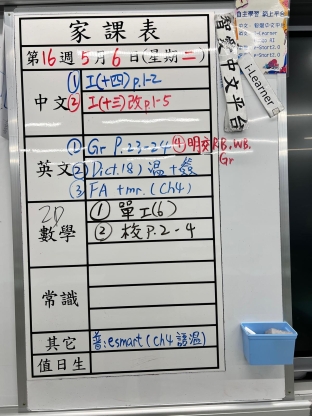 家課表
第16週5月6日(星期二)
中文
① I(十四)p.1-2
② I(十三)改p1-5
英文
① Gr P.23-24 ④明交RB,WB,
Gr
② Dict.(8) 溫+簽
③ FA +mr.(Ch4)
數學
2D
① 單I(6)
② 校P.2-4
常識
其它
普:esmart(Ch4 語溫)
值日生
智愛中文平台
自主學習 網上平台
i-Learner